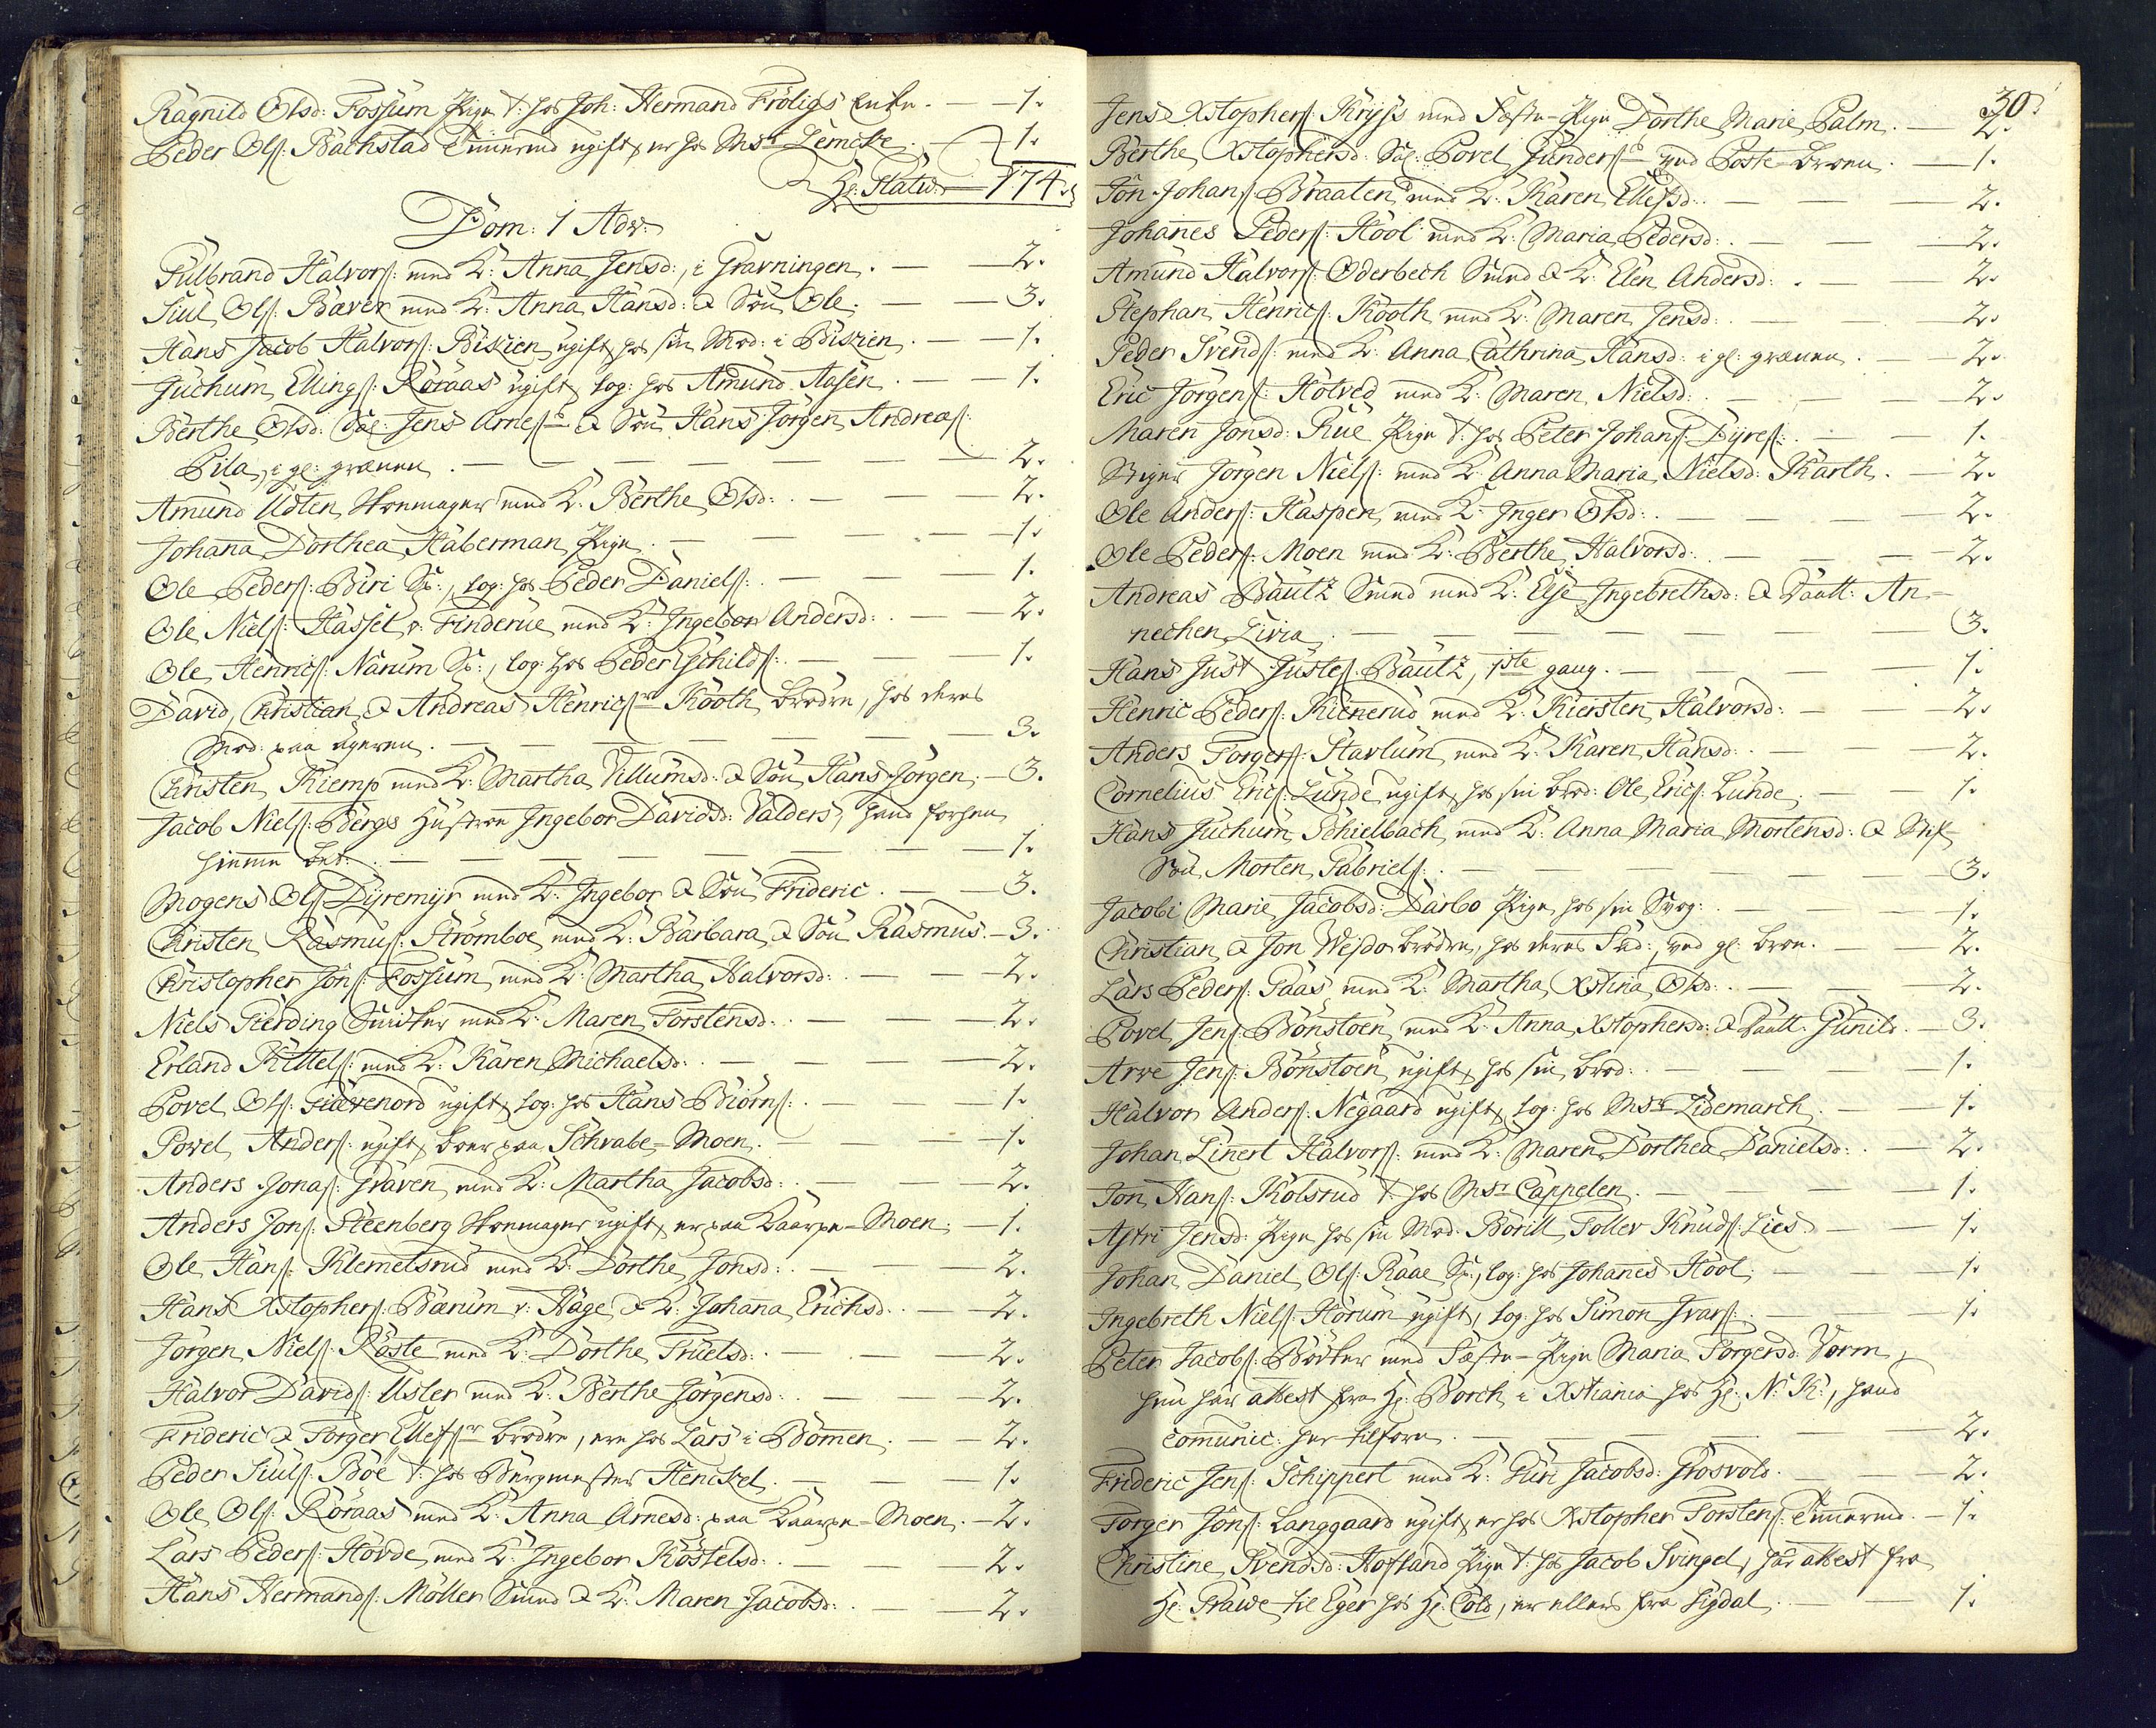 Ragnild Olsd: Fossum Pige t: hos Joh: Hermand Fröligs Enke. — 1.
Peder Ols: Bachstad Timmermd ugift, er hos Msr Lemche. — 1.
Hr: Statw. — 174.
Dom: 1 Adv:
Gulbrand Halvors: med K: Anna Jensd:, i Gravningen. — 2.
Siul Ols: Bæver med K: Anna Hansd: & Sön Ole. — 3.
Hans Jacob Halvors: Biskien, ugift, hos sin Mod: i Biskien. — 1.
Juchum Ellings: Röraas ugift, log: hos Amund Aasen. — 1.
Berthe Olsd: Sal: Jens Arnes: & Sön Hans Jörgen Andreas:
Pila, i gl: grænen. — 2.
Amund Udten, Skoemager med K: Berthe Olsd: — 2.
Johana Dorthea Haberman, Pige. — 1.
Ole Peders: Biri Sp:, log: hos Peder Daniels: — 1.
Ole Niels: Hassel v: Finderue, med K: Ingebor Andersd: — 2.
Ole Henrics: Narum Sp:, log: hos Peder Eschilds: — 1.
David, Christian, & Andreas Henricsr Kooth, brödre, hos deres
Mod: paa ageren. — 3.
Christen Kiemp med K: Martha Villumsd: & Sön Hans Jörgen. — 3.
Jacob Niels: Bergs Hustroe Ingebor Davidsd: Valders, hand forhen
hiemme ber: — 1.
Mogens Ols: Dyremyr med K: Ingebor & Sön Frideric. — 3.
Christen Rasmus: Strömboe, med K: Barbara, & Sön Rasmus. — 3.
Christopher Jons: Fossum, med K: Martha Halvorsd: — 2.
Niels Gierding Snidker med K: Maren Torstensd: — 2.
Erland Kittels: med K: Karen Michaelsd: — 2.
Povel Ols: Giævenord ugift, log: hos Hans Biörns: — 1.
Povel Anders: ugift, boer paa Schrabe-Moen. — 1.
Anders Jonas: Graven, med K: Martha Jacobsd: — 2.
Anders Jons: Steenberg Skoemager ugift, er paa Kaarpe-Moen. — 1.
Ole Hans: Klemetsrud med K: Dorthe Jonsd: — 2.
Hans Xstophers: Bærum v: Hage, & K: Johanna Erichsd: — 2.
Jörgen Niels: Röste med K: Dorthe Truelsd: — 2.
Halvor Davids: Usler med K: Berthe Jörgensd: — 2.
Frideric & Torger Ellefsr brödre, ere hos Lars i Bömen. — 2.
Peder Siuls: Böe t: hos Bergmester Henckel. — 1.
Ole Ols: Röraas med K: Anna Arnesd: paa Kaarpe-Moen. — 2.
Lars Peders: Hovde, med K: Ingebor Köstelsd: — 2.
Hans Hermands: Möller Smed & K: Maren Jacobsd: — 2.
30.
Jens Xstophers: Kryss med Fæste-Pige Dorthe Marie Palm. — 2.
Berthe Xstophersd: Sal: Povel Gunders: ved Poste-broen. — 1.
Jon Johans: Braaten, med K: Karen Ellefsd: — 2.
Johanes Peders: Hool med K: Maria Pedersd: — 2.
Amund Halvors: Oderbech Smed & K: Elen Andersd: — 2.
Stephan Henrics: Kooth, med K: Maren Jensd: — 2.
Peder Svends: med K: Anna Cathrina Hansd: i gl: grænen. — 2.
Eric Jörgens: Hotved med K: Maren Nielsd: — 2.
Maren Jonsd: Rue Pige t: hos Peter Johans: Dyres: — 1.
Stiger Jörgen Niels: med K: Anna Maria Nielsd: Karth. — 2.
Ole Anders: Haspen, med K: Inger Olsd: — 2.
Ole Peders: Moen med K: Berthe Halvorsd: — 2.
Andreas Bautz Smed med K: Else Ingebrethsd: & Daatt: An-
nechen Livia. — 3.
Hans Just Justes: Bautz, 1ste gang. — 1.
Henric Peders: Kiennerud med K: Kiersten Halvorsd: — 2.
Anders Torgers: Stavlum, med K: Karen Hansd: — 2.
Cornelius Erics: Lunde, ugift, hos sin brod: Ole Erics: Lunde. — 1.
Hans Juchum Schielbach, med K: Anna Maria Mortensd: & Stif-
Sön, Morten Gabriels: — 3.
Jacobi Marie Jacobsd: Darbo Pige, hos sin Svog: — 1.
Christian & Jon Wejdo brödre, hos deres Fad:, ved gl: broe. — 2.
Lars Peders: Gaas, med K: Martha Xstina Olsd: — 2.
Povel Jens: Bönstoen, med K: Anna Xstophersd: & Daatt: Gunild. — 3.
Arve Jens: Bönstoen, ugift, hos sin brod: — 1.
Halvor Anders: Negaard ugift, log: hos Msr Lidemarch. — 1.
Johan Linert Halvors: med K: Maren Dorthea Danielsd: — 2.
Jon Hans: Kolsrud t: hos Msr Cappelen. — 1.
Astri Jensd: Pige hos sin Mod: Borill Tollev Knuds: Lies. — 1.
Johan Daniel Ols: Raae, Sp:, log: hos Johanes Hool. — 1.
Ingebreth Niels: Horum ugift, log: hos Simon Ivars: — 1.
Peter Jacobs: Bödker med Fæste-Pige Maria Torgersd: Vorm,
hun har attest fra Hr: Borch i Xstiania hos Hr: N: K:, hand
comunic: her tilforn. — 2.
Frideric Jens: Schippert med K: Guri Jacobsd: Grosvold. — 2.
Torger Jons: Langgaard ugift, er hos Xstopher Torstens: Timmermd. — 1.
Christine Svendsd: Hofland Pige t: hos Jacob Svingel, har attest fra
Hr: Grawe til Eger hos Hr: Cold, er ellers fra Sigdal. — 1.